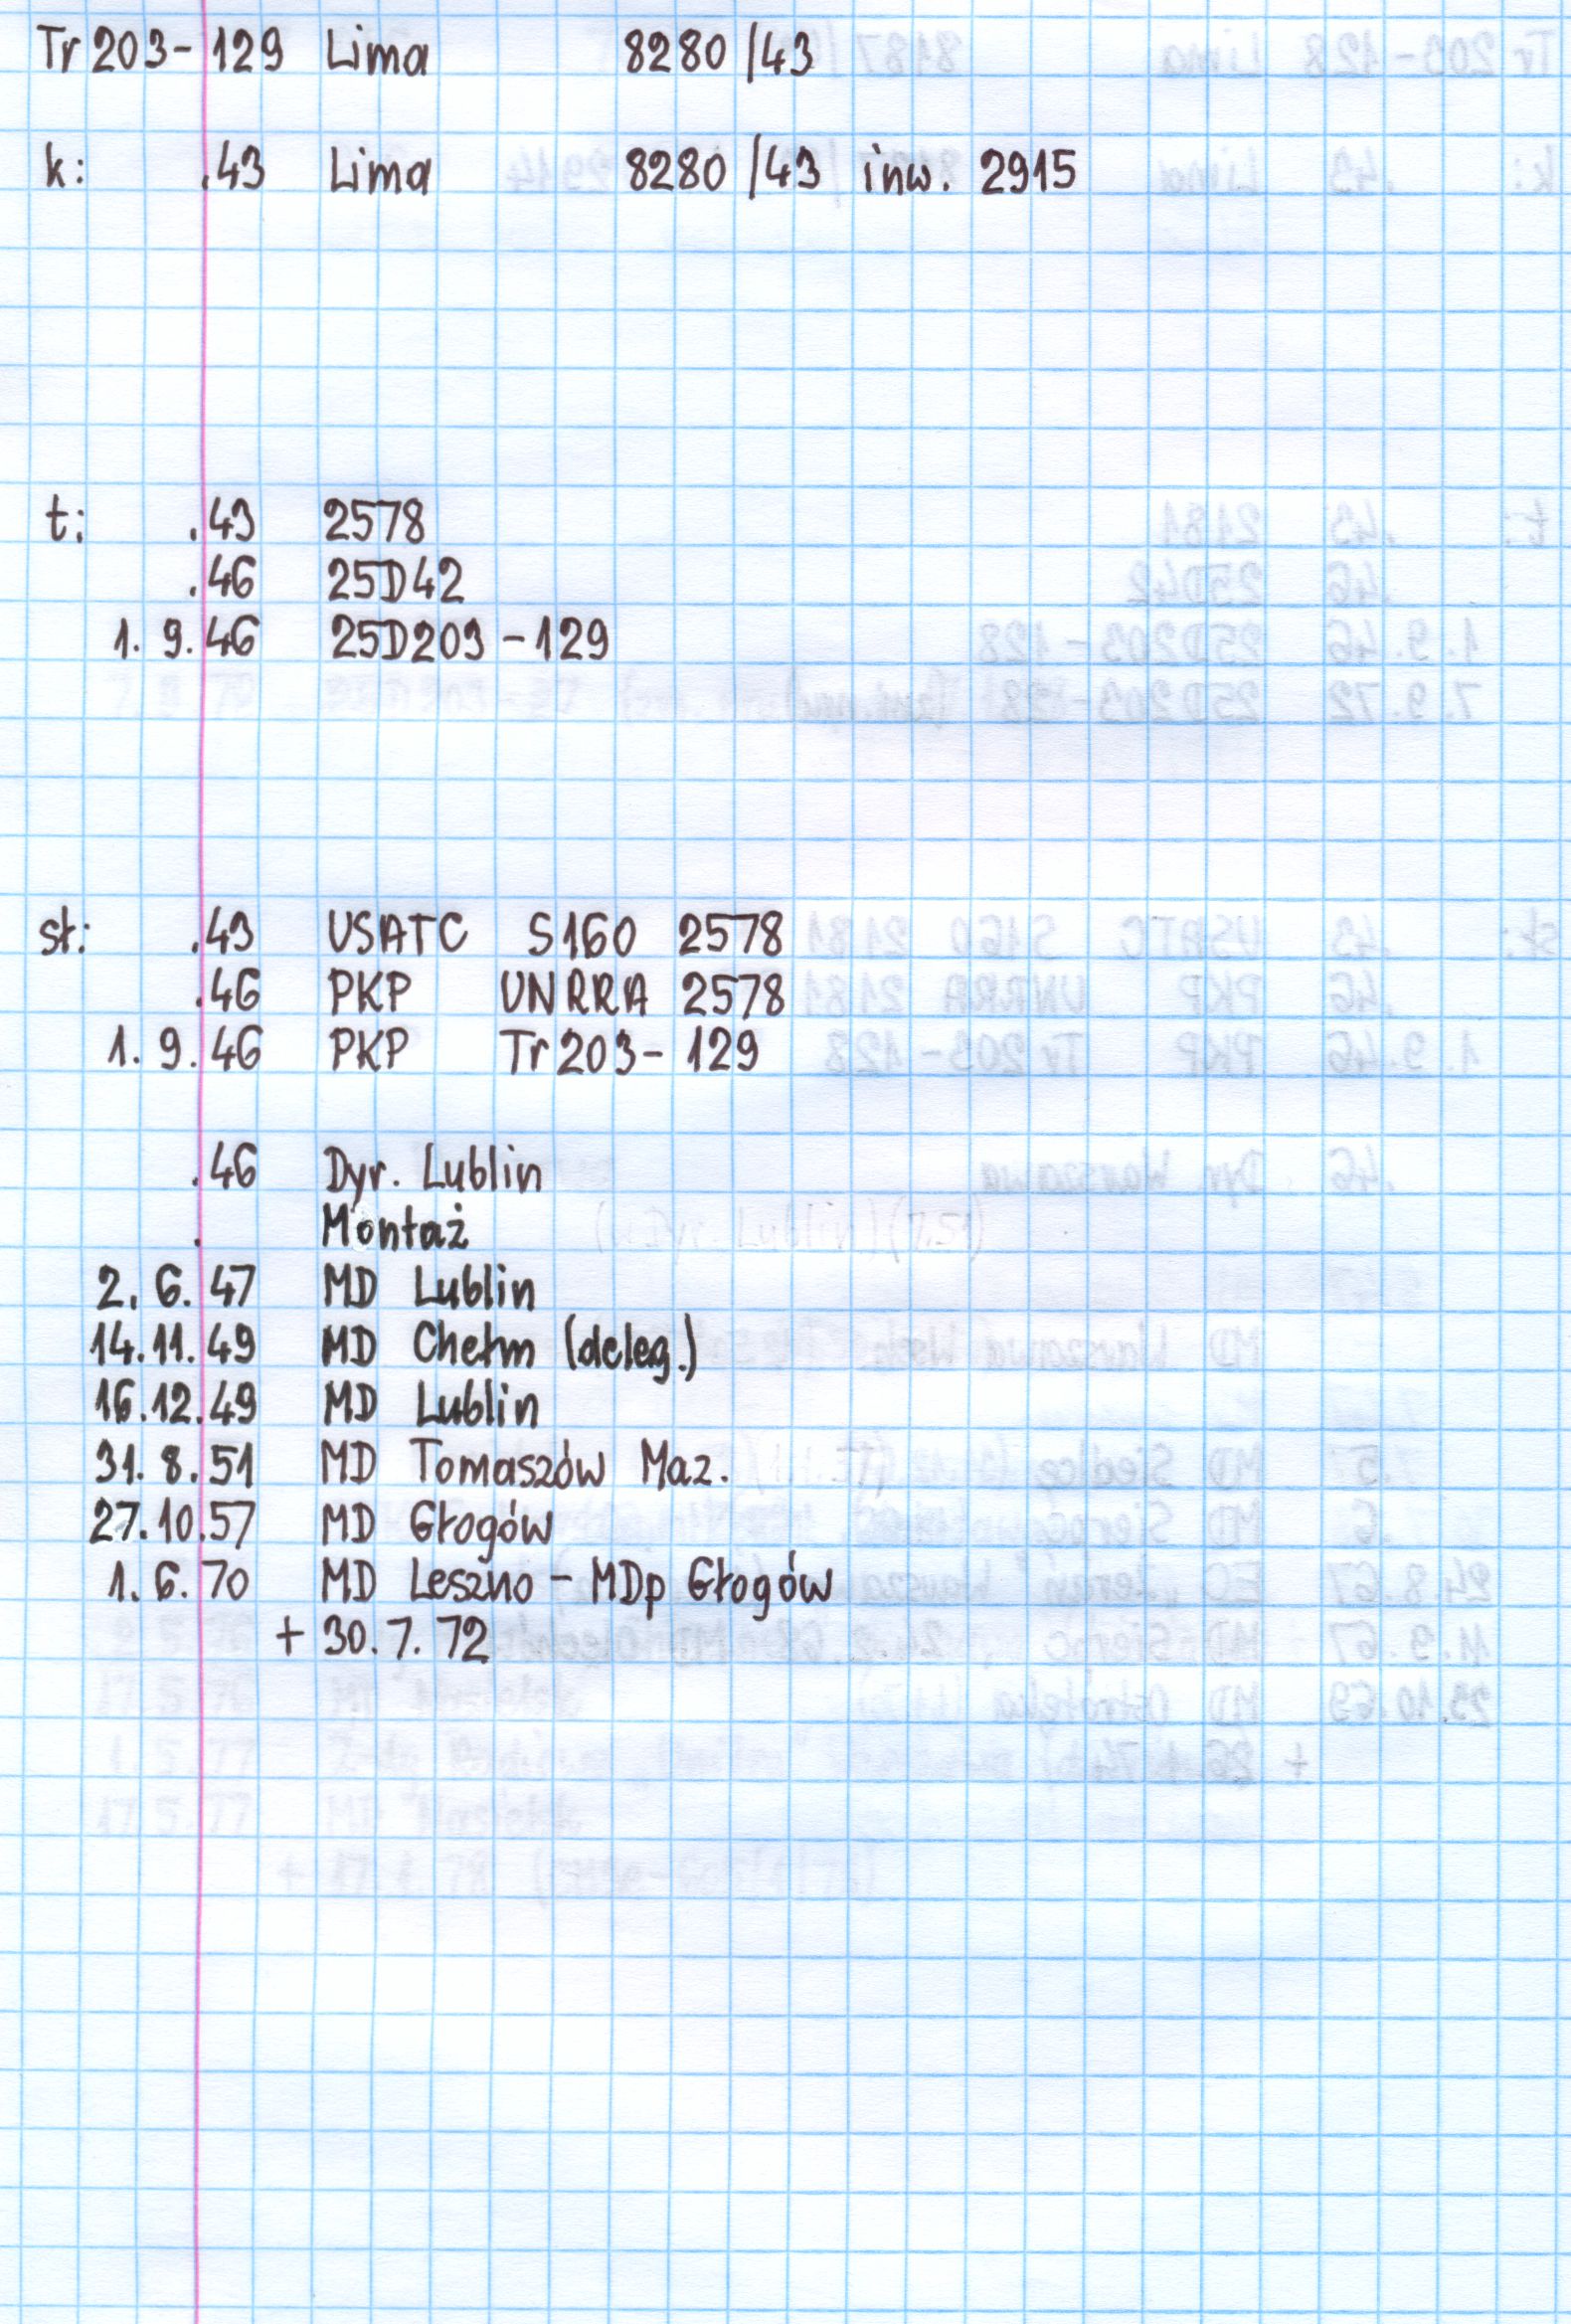 Tr 203 - 129 Lima 8280 /43
k: .43 Lima 8280 /43 inw. 2915
t: .43 2578
.46 25D42
1. 9. 46 25D203 - 129
sł: .43 USATC S160 2578
.46 PKP UNRRA 2578
1. 9. 46 PKP Tr 203 - 129
.46 Dyr. Lublin
. Montaż
2. 6. 47 MD Lublin
14. 11. 49 MD Chełm (deleg.)
16. 12. 49 MD Lublin
31. 8. 51 MD Tomaszów Maz.
27. 10. 57 MD Głogów
1. 6. 70 MD Leszno - MDp Głogów
+ 30. 7. 72